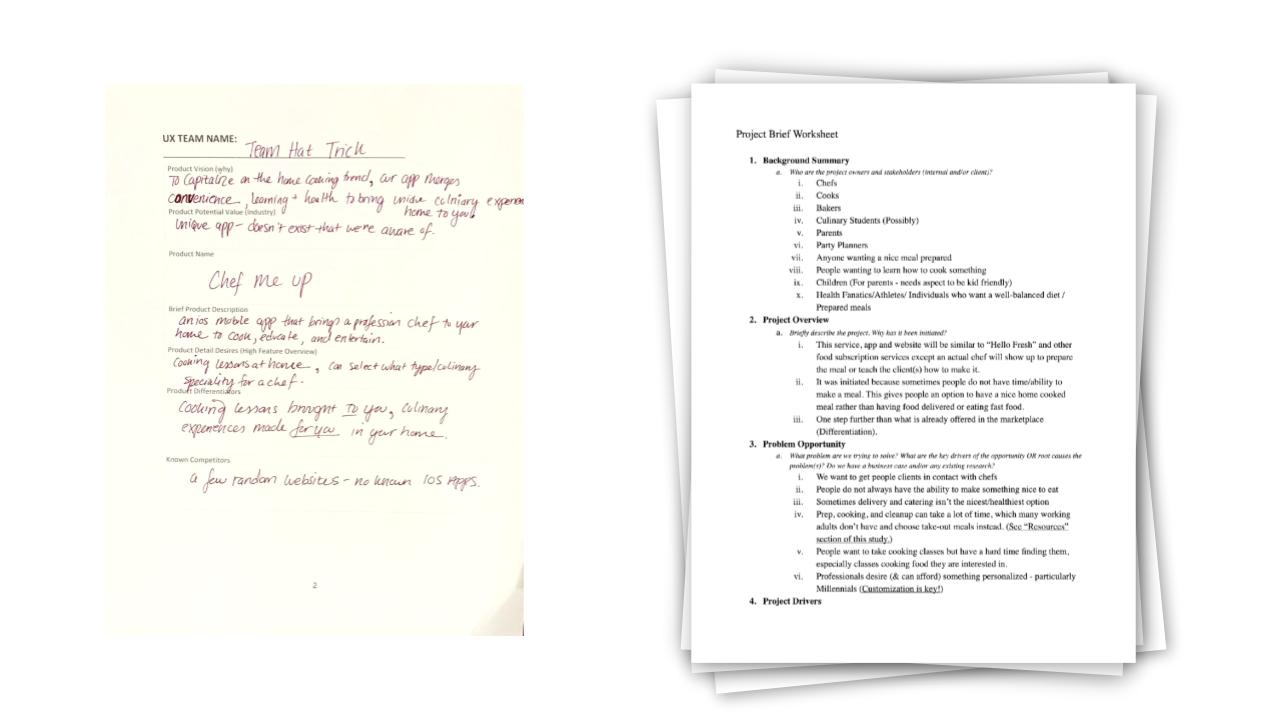 UX TEAM NAME: Team Hat Trick
Product Vision (why)
To Capitalize on the home cooking trend, our app merges
convenience, learning + health to bring unique culniary experien
home to you.
Product Potential Value (Industry)
Unique app - doesn't exist that we're aware of.
Product Name
Chef me up
Brief Product Description
an ios mobile app that brings a profession chef to your
home to cook, educate, and entertain.
Product Detail Desires (High Feature Overview)
Cooking lessons at home, can select what type/culinary
speciality for a chef.
Product Differentiators
Cooking lessons brought To you, culinary
experiences made for you in your home.
Known Competitors
a few random websites - no known IOS Apps.
2
Project Brief Worksheet
1. Background Summary
a. Who are the project owners and stakeholders (internal and/or client)?
i. Chefs
ii. Cooks
iii. Bakers
iv. Culinary Students (Possibly)
v. Parents
vi. Party Planners
vii. Anyone wanting a nice meal prepared
viii. People wanting to learn how to cook something
ix. Children (For parents - needs aspect to be kid friendly)
x. Health Fanatics/Athletes/ Individuals who want a well-balanced diet /
Prepared meals
2. Project Overview
a. Briefly describe the project. Why has it been initiated?
i. This service, app and website will be similar to “Hello Fresh” and other
food subscription services except an actual chef will show up to prepare
the meal or teach the client(s) how to make it.
ii. It was initiated because sometimes people do not have time/ability to
make a meal. This gives people an option to have a nice home cooked
meal rather than having food delivered or eating fast food.
iii. One step further than what is already offered in the marketplace
(Differentiation).
3. Problem Opportunity
a. What problem are we trying to solve? What are the key drivers of the opportunity OR root causes the
problem(s)? Do we have a business case and/or any existing research?
i. We want to get people clients in contact with chefs
ii. People do not always have the ability to make something nice to eat
iii. Sometimes delivery and catering isn’t the nicest/healthiest option
iv. Prep, cooking, and cleanup can take a lot of time, which many working
adults don’t have and choose take-out meals instead. (See “Resources”
section of this study.)
v. People want to take cooking classes but have a hard time finding them,
especially classes cooking food they are interested in.
vi. Professionals desire (& can afford) something personalized - particularly
Millennials (Customization is key!)
4. Project Drivers